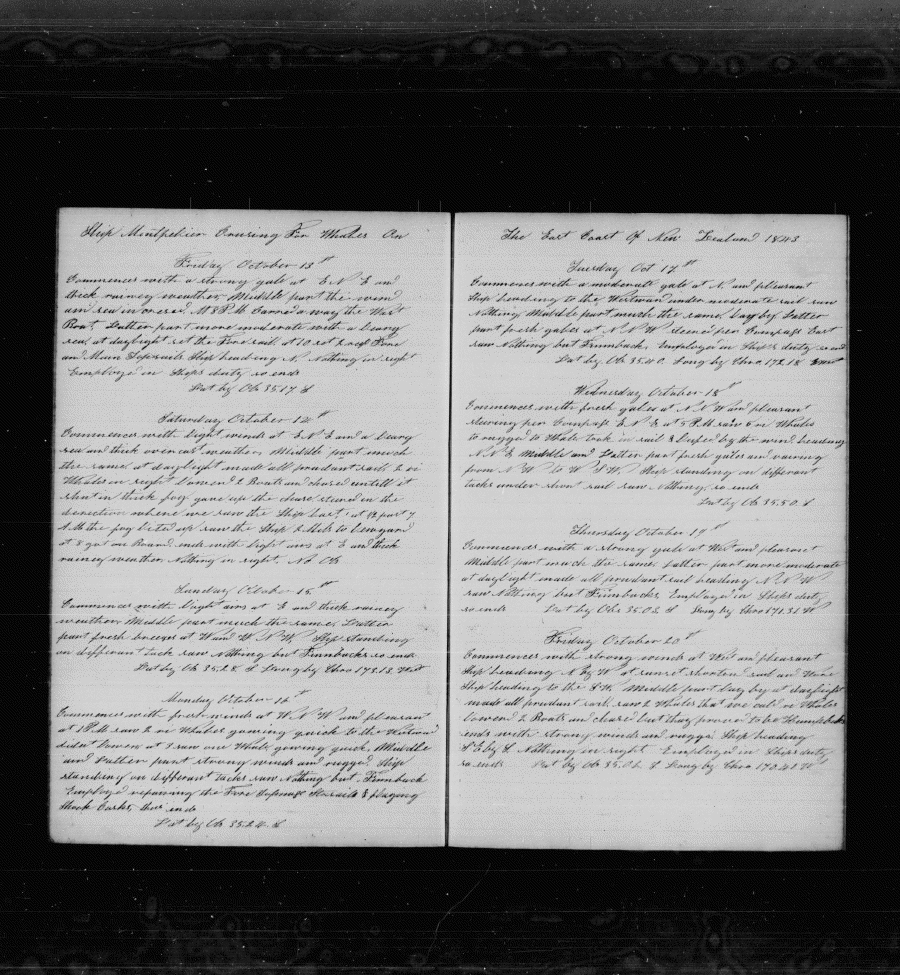 Ship Montpelier Crusing For Whales On
Friday October 13th
Commences with a strong gale at E N E and
thick rainey weather Middle part the wind
and sea increased. At 8 P M Carried a way the West
Boat, Latter part more moderate with a heavy
sea, at daylight set the Fore sail at 10 set 2 reef Fore
and Main Topsails Ship heading N. Nothing in sight
Employed in Ships duty so ends
Lat by Ob 35.17 S
Saturday October 14th
Commences with light winds at E N E and a heavy
sea and thick overcast weather, Middle part much
the same at daylight made all prudant sail 2
Whales in sight lowered 2 Boats and chased untill it
shut in thick fog gave up the chase steered in the
direction where we saw the Ship Last, at ½ part 7
A.M the fog lited up saw the Ship 8 Mils to leeward
at 8 got on Board ends with light airs at E and thick
rainey weather Nothing in sight, No Ob
Sunday October 15th
Commences with light airs at E and thick rainey
weather Middle part much the same, Latter
part fresh breezes at W and W N W, Ship standing
on differant tack saw Nothing but Finnbacks so ends
Lat by Ob 35.28 S Long by Chro 173.13 West
Monday October 16th
Commences with fresh winds at W N W and pleasant
at 1 P.M saw 2 or Whales gowing quick to the Wetward
didn't lower at 3 saw one Whale gowing quick, Middle
and Latter part strong winds and rugged Ship
standing on differant tacks saw Nothing but Finnback
Employed repairing the Fore Topmast Staysails &
Shook Casks, thus ends
Lat by Ob 35.24 S
The East Coast Of New Zealand 1843
Tuesday Oct 17th
Commences with a moderate gale at N. and pleasant
Ship heading to the Westward under moderate sail saw
Nothing Middle part much the same, Latter
part fresh gales at N.N.W steered per Compass East
saw Nothing but Finnback, Employed in Ships duty so ends
Lat by Ob 35.40 Long by Chro 172.18
Wednesday October 18th
Commences with fresh gales at N N W and pleasant
steering per Compass E N E at 5 P.M saw 5 or Whales
to rugged to Whale took in sail & luffed by the wind heading
N.N.E Middle and Latter part fresh gales and vairing
from N W to W S W, Ship standing on differant
tacks under short sail saw Nothing, so ends
Lat by Ob 35.50 S
Thursday October 19th
Commences with a strong gale at West and pleasant
Middle part much the same, Latter part more moderate
at daylight made all prudant sail heading N N W
saw Nothing but Finnbacks Employed in Ships duty
so ends Lat by Ob 35.02 S Long by Chro 171.31 W
Friday October 20th
Commences with strong winds at West and pleasant
Ship heading N by W at sunset shorten sail and
Ship heading to the S.W. Middle part lay by at daylight
made all prudant sail saw 2 Whales that we call Whales
lowered 2 Boats and chased but they proved to be Humpbacks
ends with strong winds and rugged Ship heading
S E by S Nothing in sight Employed in Ships duty
so ends Lat by Ob 35.02 S Long by Chro 170.42 W